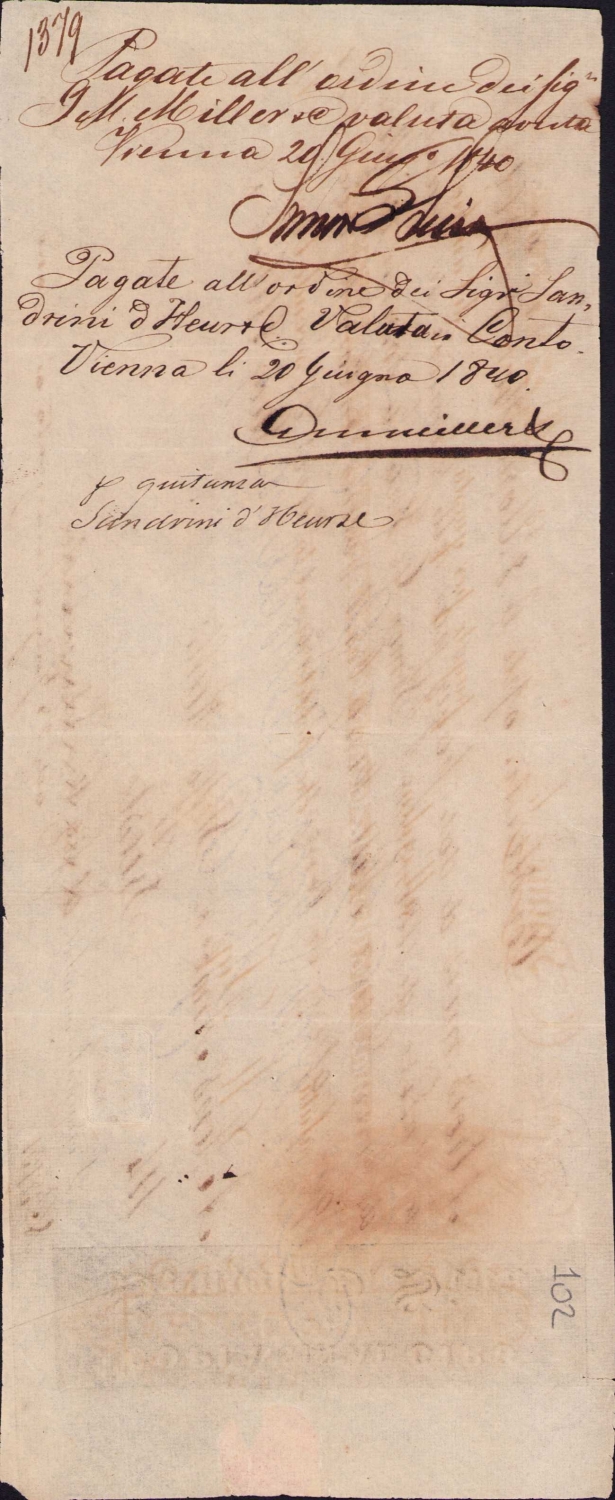 1379
Pagate all'ordine dei Sigri
J. M. Miller & C valuta avuta
Vienna 20 Giugo 1840
Pagate all'ordine dei Sigri San-
drini d'Heurse Valuta in Conto.
Vienna li 20 Giugno 1840.
JMMiller & C
p quitanza
Sandrini d'Heurse
102